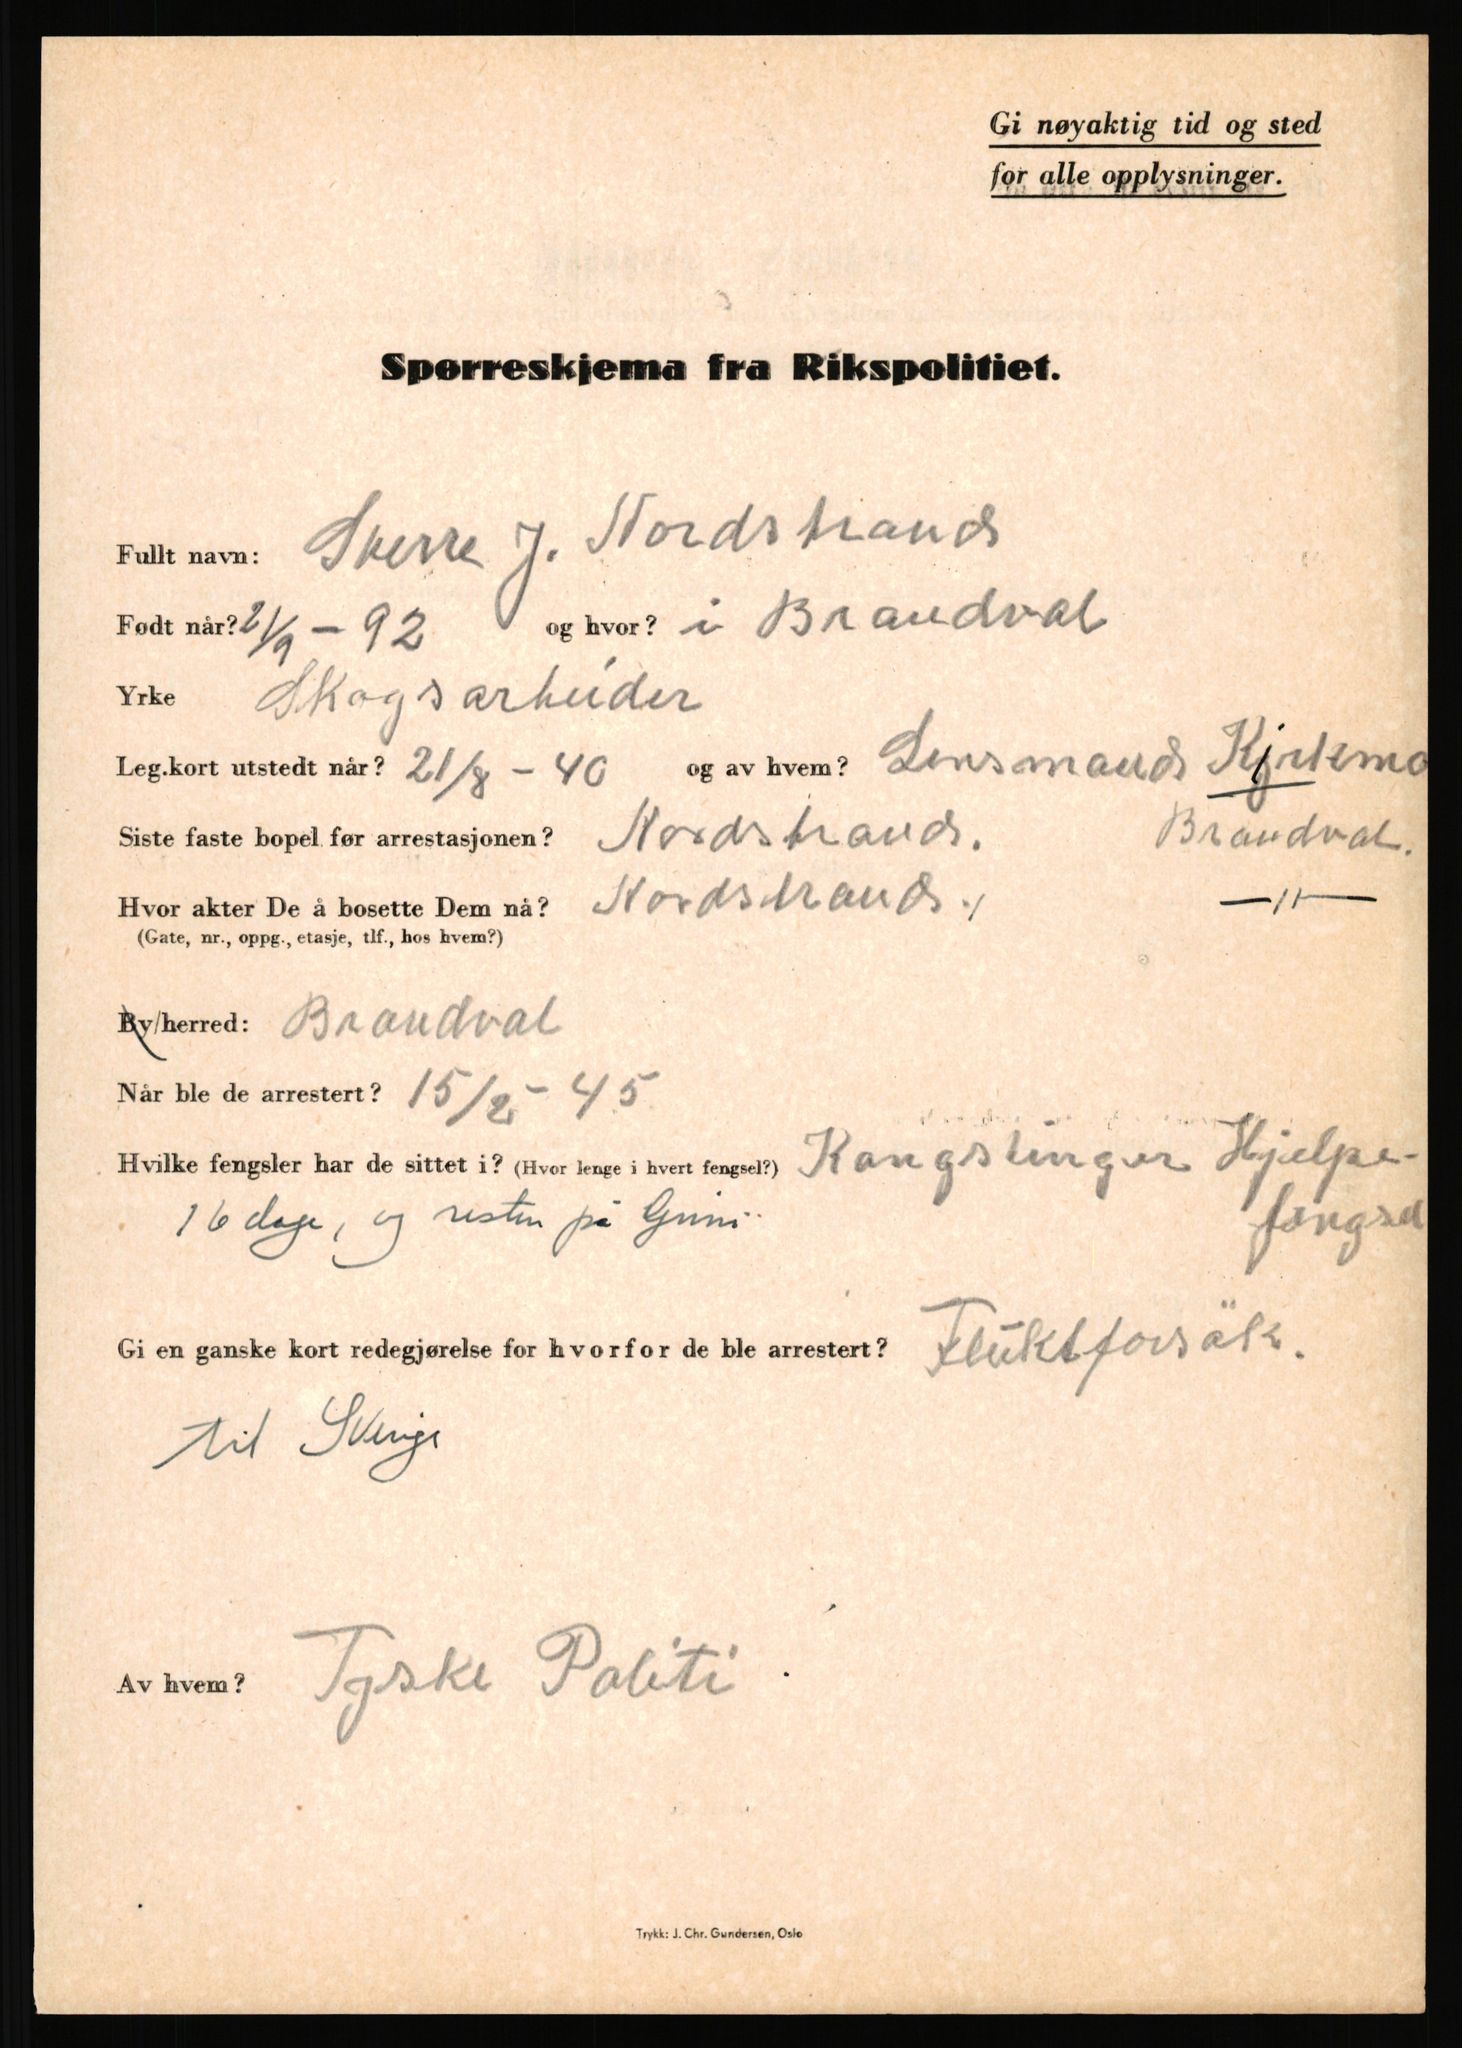 Gi nøyaktig tid og sted
for alle opplysninger.
Spørreskjema fra Rikspolitiet.
Fullt navn: Sverre J. Nordstrand
Født når? 2/9 - 92 og hvor? i Brandval
Yrke Skogsarbeider
Leg.kort utstedt når? 21/8 - 40 og av hvem? Lensmand Kirkemo
Siste faste bopel før arrestasjonen? Nordstrand. Brandval.
Hvor akter De å bosette Dem nå? Nordstrand. —〃—
(Gate, nr., oppg., etasje, tlf., hos hvem?)
By/herred: Brandval
Når ble de arrestert? 15/2 - 45
Hvilke fengsler har de sittet i? (Hvor lenge i hvert fengsel?) Kongsvinger Hjelpe-
fengsel
16 dage, og resten på Grini
Gi en ganske kort redegjørelse for hvorfor de ble arrestert? Fluktforsök.
til Sverige
Av hvem? Tyske Politi
Trykk: J. Chr. Gundersen, Oslo